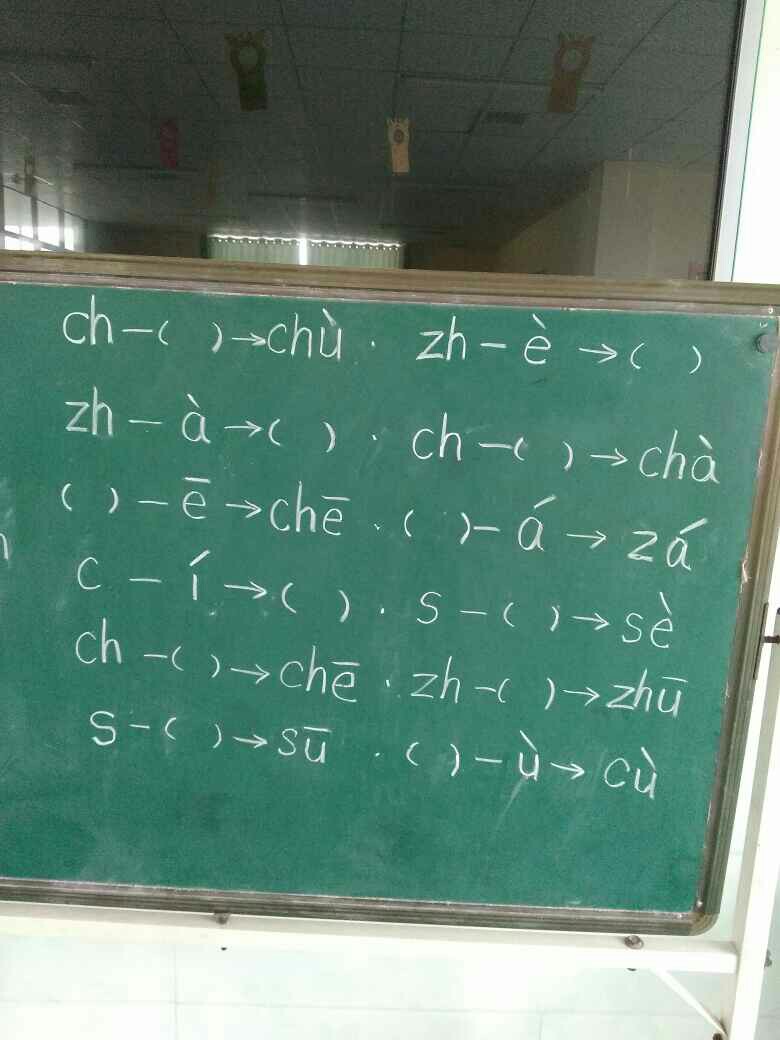 ch-( )→chù · zh-è→( )
zh-à→( ) · ch-( )→chà
( )-ē→chē · ( )-á→zá
c-í→( ) · s-( )→sè
ch-( )→chē · zh-( )→zhū
s-( )→sū · ( )-ù→cù